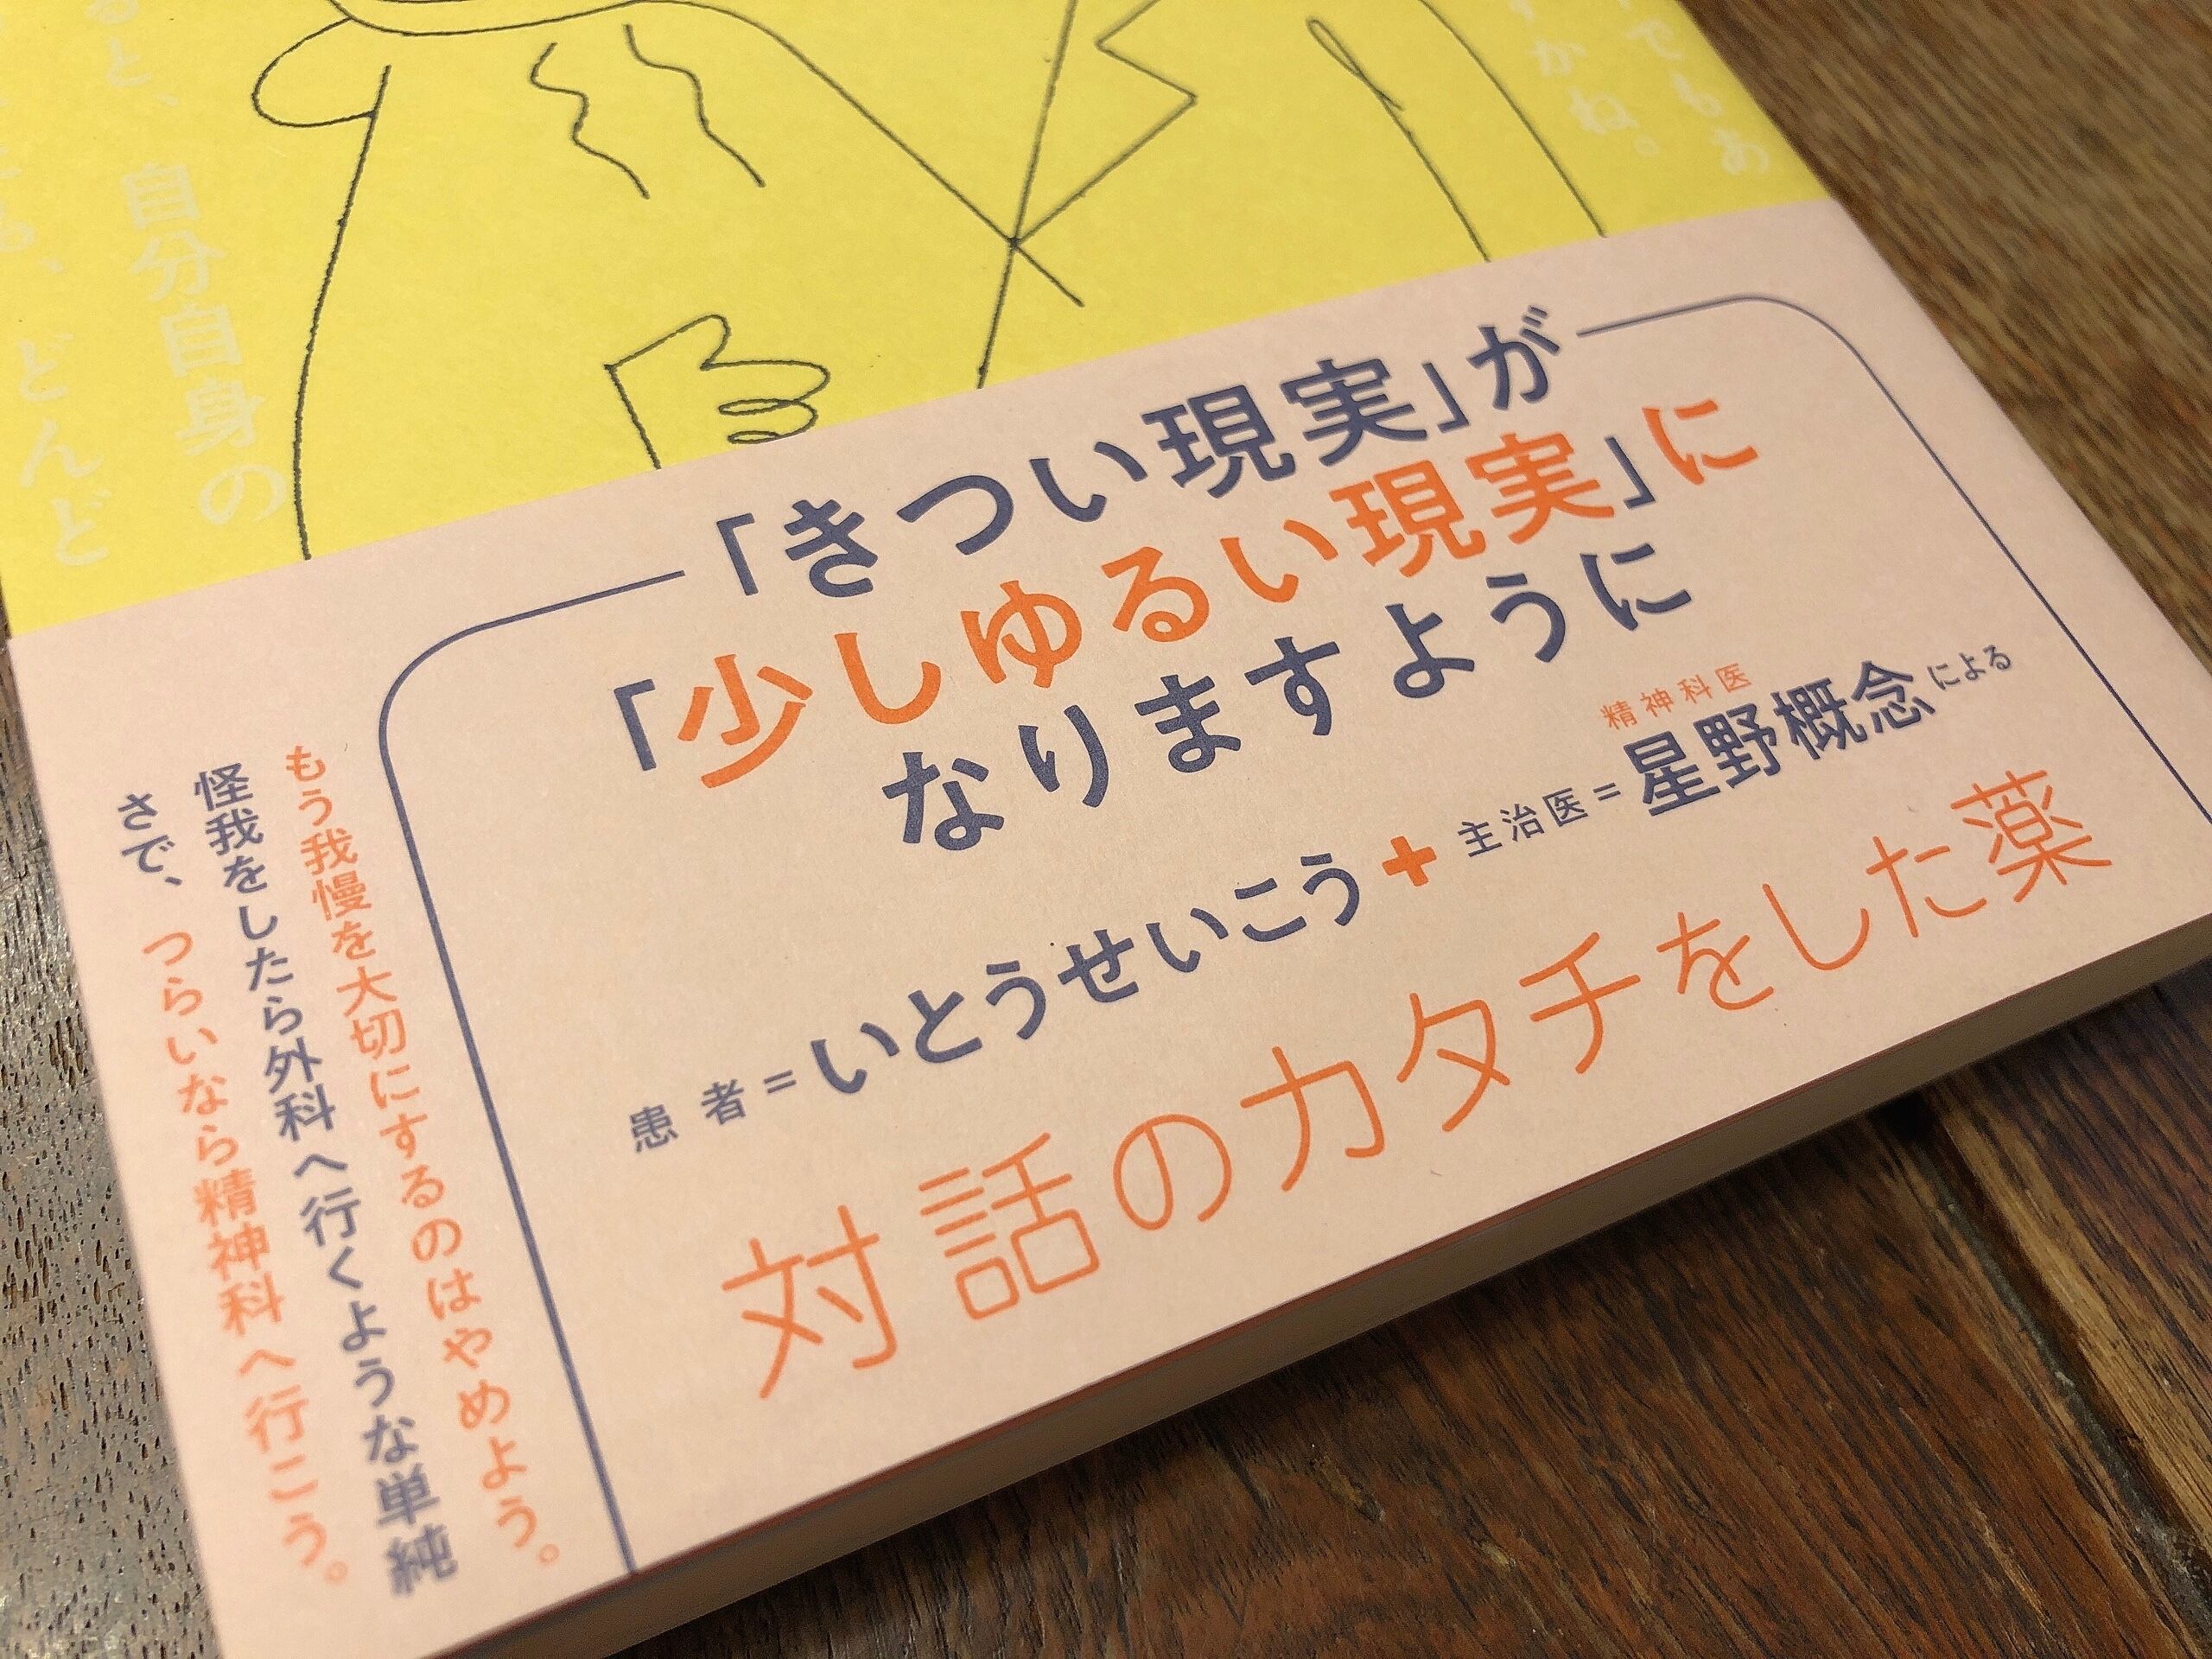 自分自身の
どんど
ると、
でもあ
かね。
「きつい現実」が
「少しゆるい現実」に
なりますように
患者=いとうせいこう+主治医=精神科医 星野概念による
対話のカタチをした薬
もう我慢を大切にするのはやめよう。
怪我をしたら外科へ行くような単純
さで、つらいなら精神科へ行こう。